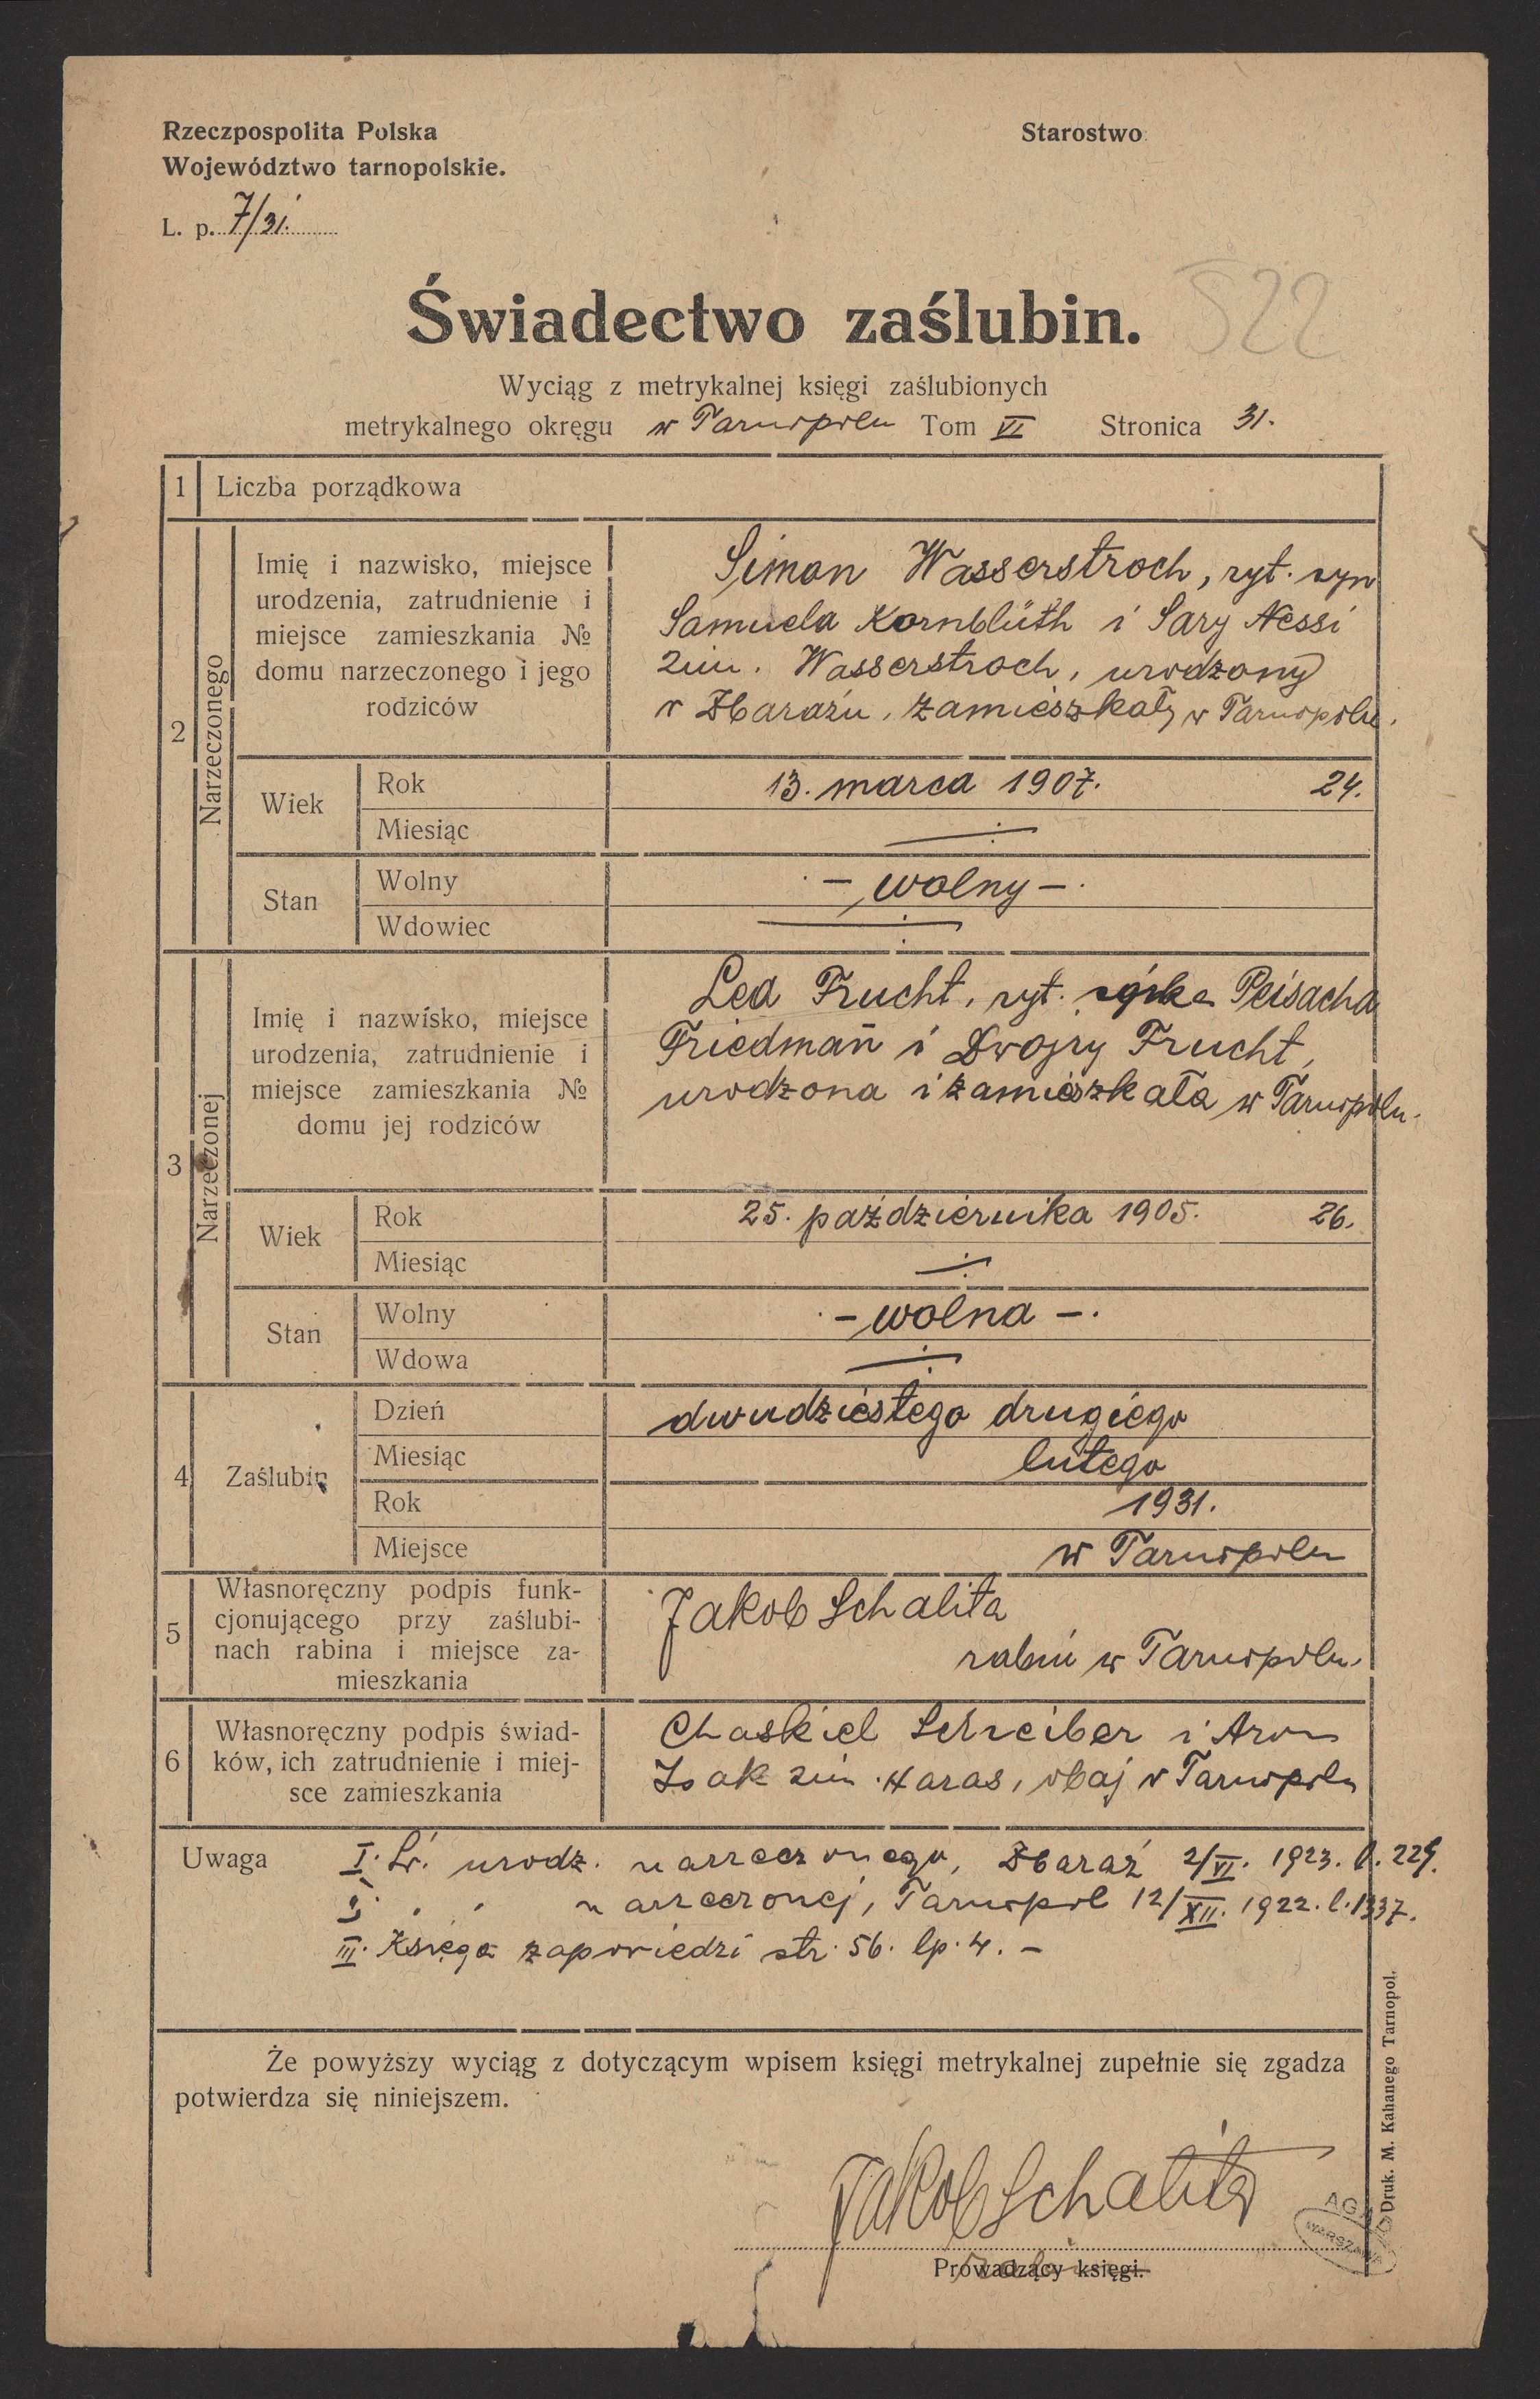 Rzeczpospolita Polska
Województwo tarnopolskie.
Starostwo
L. p. 7/31.
522
Świadectwo zaślubin.
Wyciąg z metrykalnej księgi zaślubionych
metrykalnego okręgu w Tarnopolu Tom VI Stronica 31.
1 Liczba porządkowa
2
Narzeczonego
Imię i nazwisko, miejsce
urodzenia, zatrudnienie i
miejsce zamieszkania №
domu narzeczonego i jego
rodziców
Simon Wasserstroch, ryt. syn
Samuela Kornblüth i Sary Nessi
2im. Wasserstroch, urodzony
w Zbarażu, zamieszkały w Tarnopolu.
Wiek
Rok 13. marca 1907. 24.
Miesiąc
Stan
Wolny – wolny –
Wdowiec
3
Narzeczonej
Imię i nazwisko, miejsce
urodzenia, zatrudnienie i
miejsce zamieszkania №
domu jej rodziców
Lea Frucht, ryt. córka Peisacha
Friedman i Dwojry Frucht,
urodzona i zamieszkała w Tarnopolu.
Wiek
Rok 25. października 1905. 26.
Miesiąc
Stan
Wolny – wolna –
Wdowa
4 Zaślubin
Dzień dwudziestego drugiego
Miesiąc lutego
Rok 1931.
Miejsce w Tarnopolu
5
Własnoręczny podpis funk-
cjonującego przy zaślubi-
nach rabina i miejsce za-
mieszkania
Jakob Schalita
rabin w Tarnopolu.
6
Własnoręczny podpis świad-
ków, ich zatrudnienie i miej-
sce zamieszkania
Chaskiel Schreiber i Aron
Izak 2im. Haras, obaj w Tarnopolu
Uwaga I. Św. urodz. narzeczonego, Zbaraż 2/VI. 1923. l. 229.
II. " " narzeczonej, Tarnopol 12/XII. 1922. l. 1337.
III. Księga zapowiedzi str. 56. lp. 4. –
Że powyższy wyciąg z dotyczącym wpisem księgi metrykalnej zupełnie się zgadza
potwierdza się niniejszem.
Jakob Schalita
Prowadzący księgi.
AGAD
WARSZAWA
Druk. M. Kahanego Tarnopol.